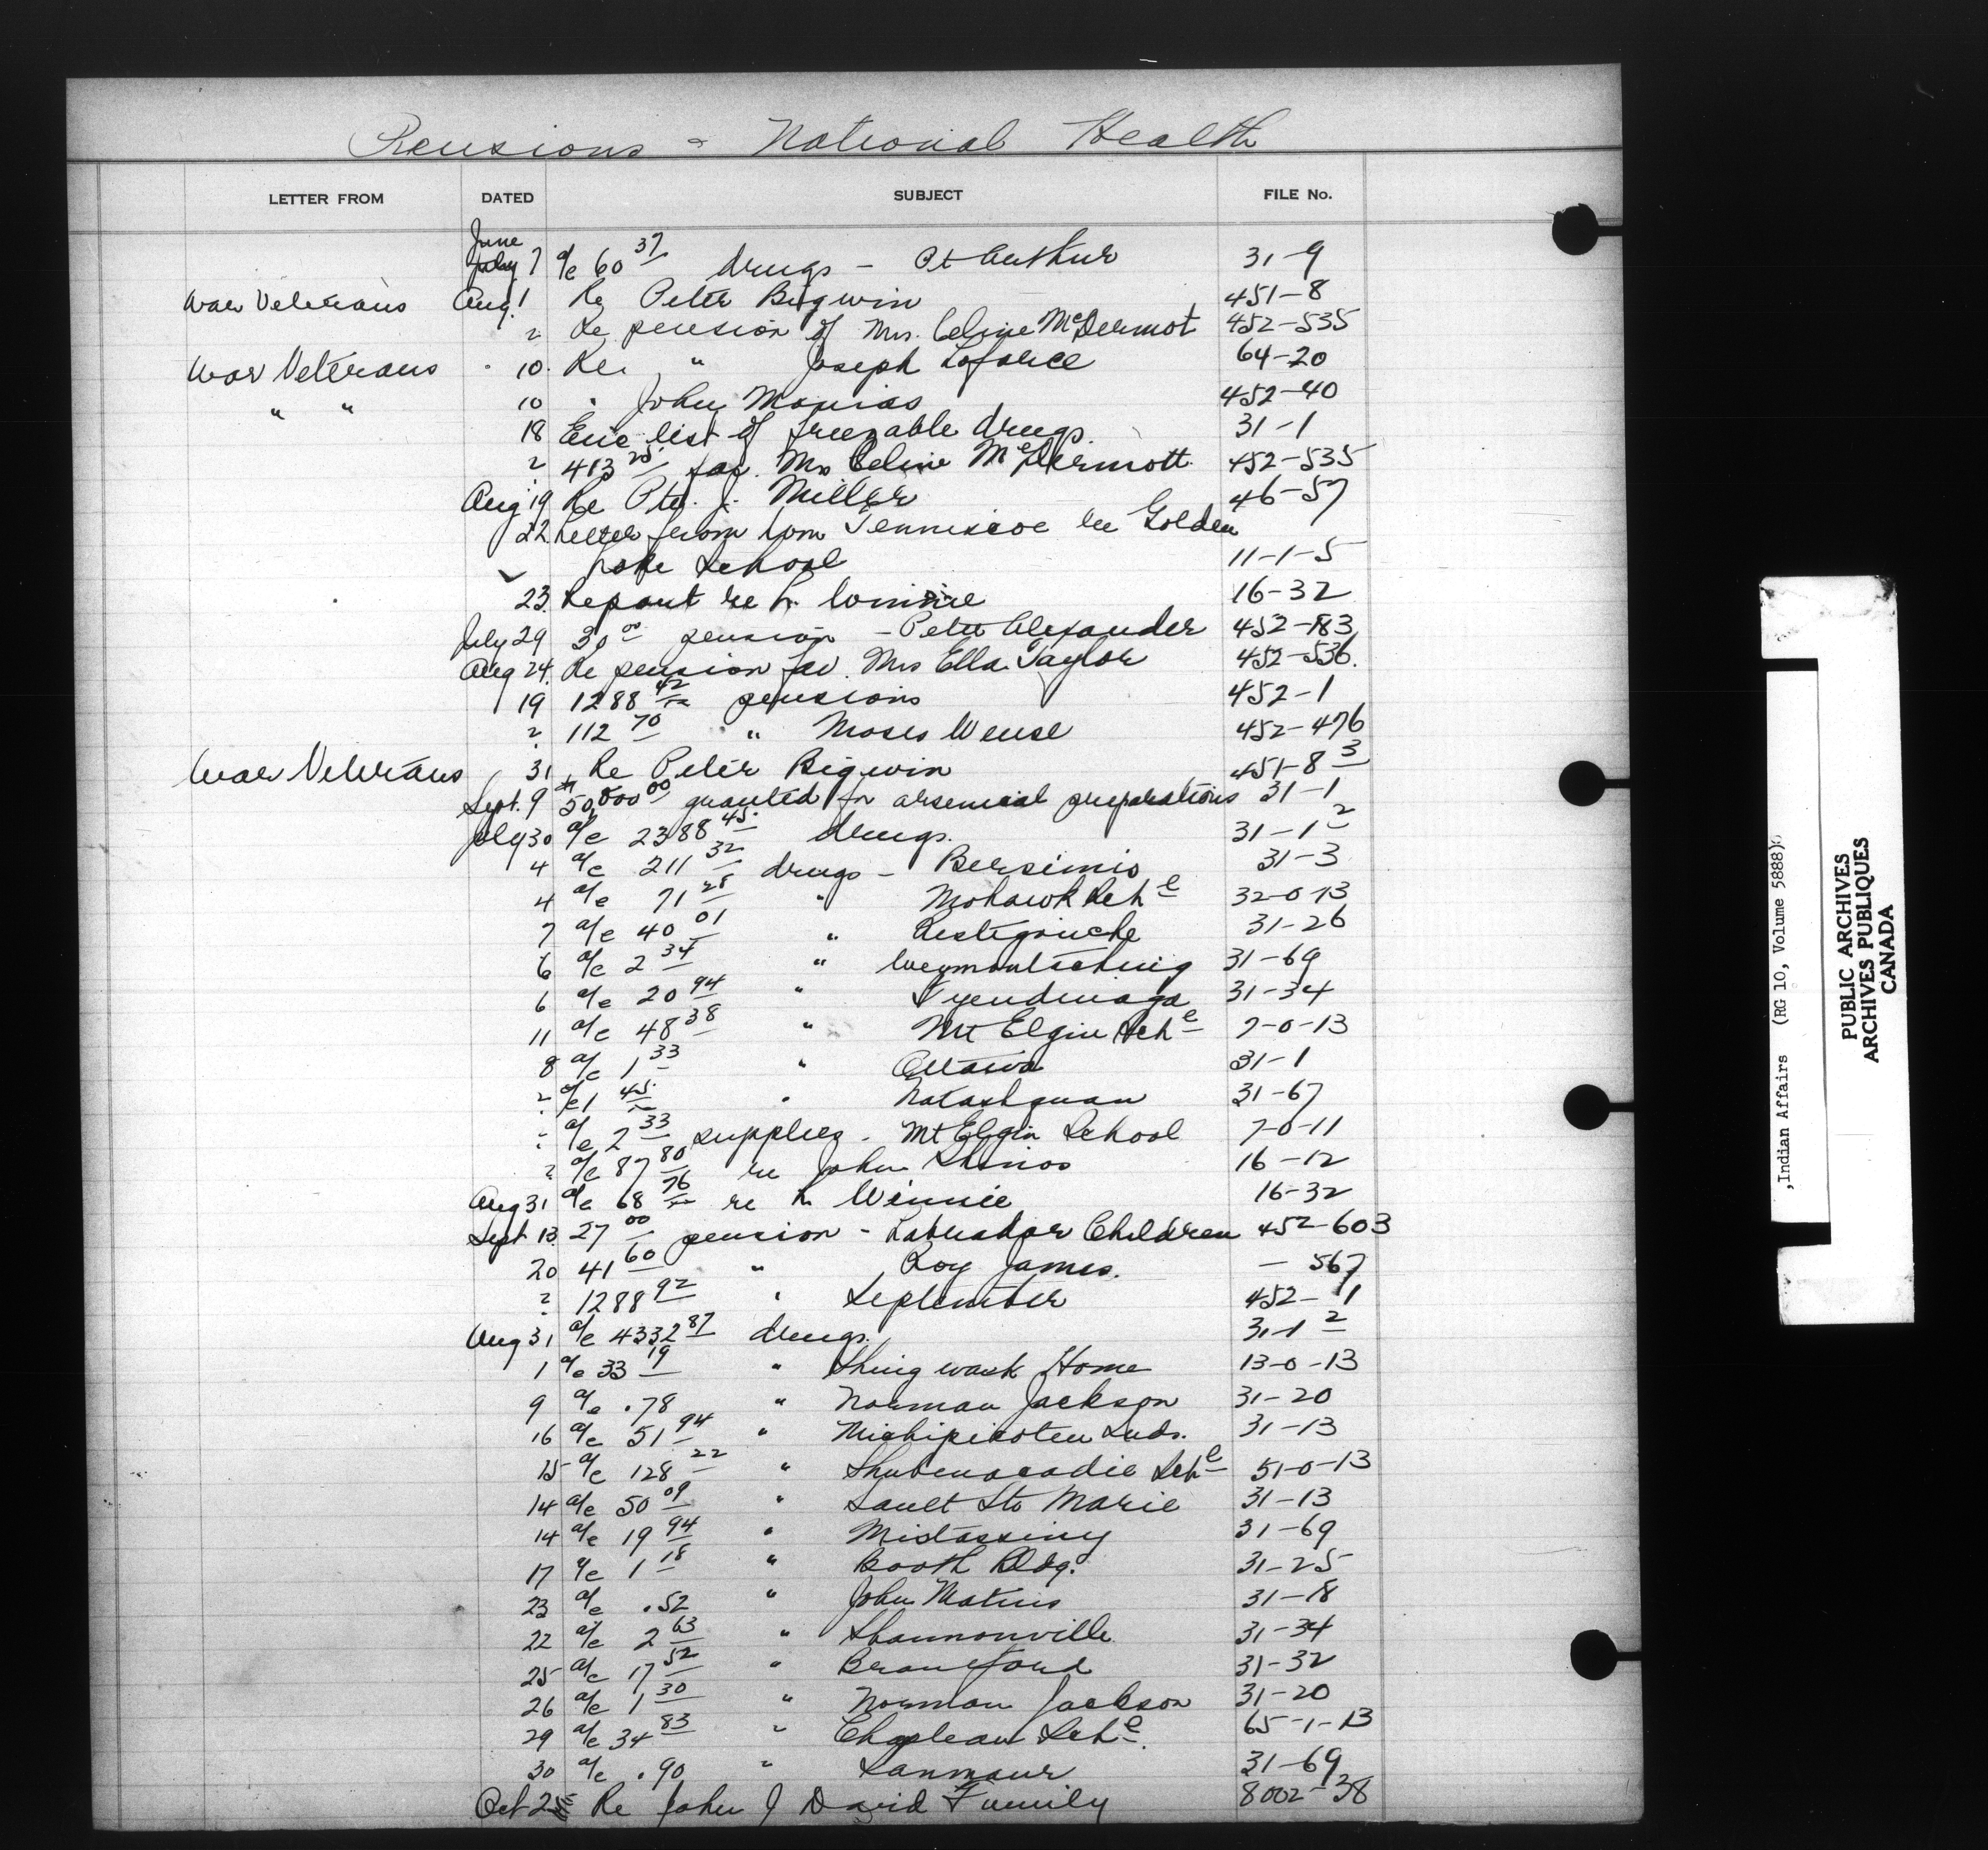 Pensions & National Health
LETTER FROM DATED SUBJECT FILE No.
June
July 7 a/c 60 37 drugs - Pt Arthur 31-9
War Veterans Aug. 1 Re Peter Bigwin 451-8
" Re pension of Mrs. Celine McDermot 452-535
War Veterans 10. Re " Joseph Laforce 64-20
" " 10 " John Manias 452-40
18 Enc list of freezable drugs. 31-1
" 413 25 for Mrs Celine McDermott. 452-535
Aug 19 Re Pte. J. Miller 46-57
22 Letter from Com Tenniscoe re Golden
Lake School 11-1-5
23. Report re L. 16-32
July 29 30 00 pension - Peter Alexander 452-183
Aug 24. Re pension for Mrs Ella Taylor 452-536.
19 1288 42 pensions 452-1
" 112 70 " Moses Wense 452-476
War Veterans 31 Re Peter Bigwin 451-8 3
Sept. 9 $50,000 00 granted for arsenical preparations 31-1
July 30 a/c 2388 45 drugs. 31-1 2
4 a/c 211 32 drugs - Bersimis 31-3
4 a/c 71 28 " Mohawk Schl 32-0-13
7 a/c 40 01 " Restigouche 31-26
6 a/c 2 34 " Weymontaching 31-69
6 a/c 20 94 " Tyendinaga 31-34
11 a/c 48 38 " Mt Elgin Schl 7-0-13
8 a/c 1 33 " Ottawa 31-1
" a/c 1 45 " Natashquan 31-67
" a/c 2 33 supplies - Mt Elgin School 7-0-11
" a/c 87 80 re John 16-12
Aug 31 a/c 68 76 re L Winnie 16-32
Sept 13. 27 00 pension - Labrador Children 452-603
20 41 60 " Roy James. - 567
" 1288 92 " September 452-1
Aug 31 a/c 4332 87 drugs. 31-1 2
1 a/c 33 19 " Shingwauk Home 13-0-13
9 a/c .78 " Norman Jackson 31-20
16 a/c 51 94 " Michipicoten Inds. 31-13
15 a/c 128 22 " Shubenacadie Schl 51-0-13
14 a/c 50 09 " Sault Ste Marie 31-13
14 a/c 19 94 " Mistassiny 31-69
17 a/c 1 18 " Booth Bldg. 31-25
23 a/c .52 " John 31-18
22 a/c 2 63 " Shannonville 31-34
25 a/c 17 52 " Brantford 31-32
26 a/c 1 30 " Norman Jackson 31-20
29 a/c 34 83 " Chapleau Schl. 65-1-13
30 a/c .90 " Sanmaur 31-69
Oct 2 Re John J David Family 8002-38
,Indian Affairs (RG 10, Volume 5888)
PUBLIC ARCHIVES
ARCHIVES PUBLIQUES
CANADA